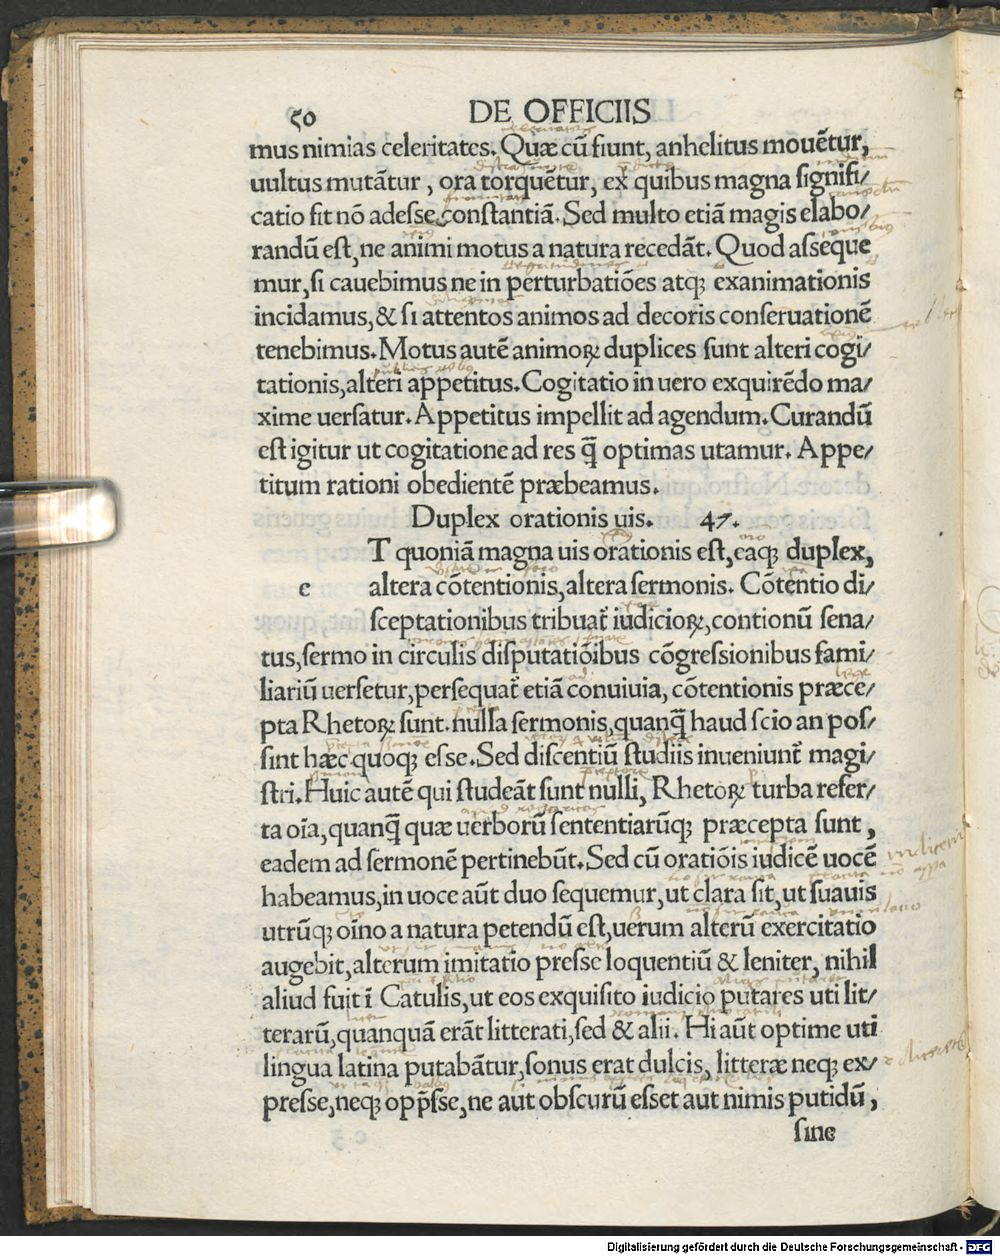 50 DE OFFICIIS
mus nimias celeritates. Quæ cū fiunt, anhelitus mouētur,
uultus mutātur, ora torquētur, ex quibus magna ſignifi/
catio fit nō adeſſe conſtantiā. Sed multo etiā magis elabo/
randū eſt, ne animi motus a natura recedāt. Quod aſſeque
mur, ſi cauebimus ne in perturbatiōes atq; exanimationis
incidamus, & ſi attentos animos ad decoris conſeruationē
tenebimus. Motus autē animoꝝ duplices ſunt alteri cogi/
tationis, alteri appetitus. Cogitatio in uero exquirēdo ma/
xime uerſatur. Appetitus impellit ad agendum. Curandū
eſt igitur ut cogitatione ad res q̄ optimas utamur. Appe/
titum rationi obedientē præbeamus.
Duplex orationis uis. 47.
T quoniā magna uis orationis eſt, eaq; duplex,
e altera cōtentionis, altera ſermonis. Cōtentio di/
ſceptationibus tribuat̄ iudicioꝝ, contionū ſena/
tus, ſermo in circulis diſputatiōibus cōgreſſionibus fami/
liariū uerſetur, perſequat̄ etiā conuiuia, cōtentionis præce/
pta Rhetoꝝ ſunt. nulla ſermonis, quanq̄ haud ſcio an poſ/
ſint hæc quoq; eſſe. Sed diſcentiū ſtudiis inueniunt̄ magi/
ſtri. Huic autē qui ſtudeāt ſunt nulli, Rhetoꝝ turba refer/
ta oīa, quanq̄ quæ uerborū ſententiarūq; præcepta ſunt,
eadem ad ſermonē pertinebūt. Sed cū oratiōis iudicē uocē
habeamus, in uoce aūt duo ſequemur, ut clara ſit, ut ſuauis
utrūq; oīno a natura petendū eſt, uerum alterū exercitatio
augebit, alterum imitatio preſſe loquentiū & leniter, nihil
aliud fuit ī Catulis, ut eos exquiſito iudicio putares uti lit/
terarū, quanquā erāt litterati, ſed & alii. Hi aūt optime uti
lingua latina putabātur, ſonus erat dulcis, litteræ neq; ex/
preſſe, neq; opp̄ſſe, ne aut obſcurū eſſet aut nimis putidū,
ſine
Digitalisierung gefördert durch die Deutsche Forschungsgemeinschaft - DFG